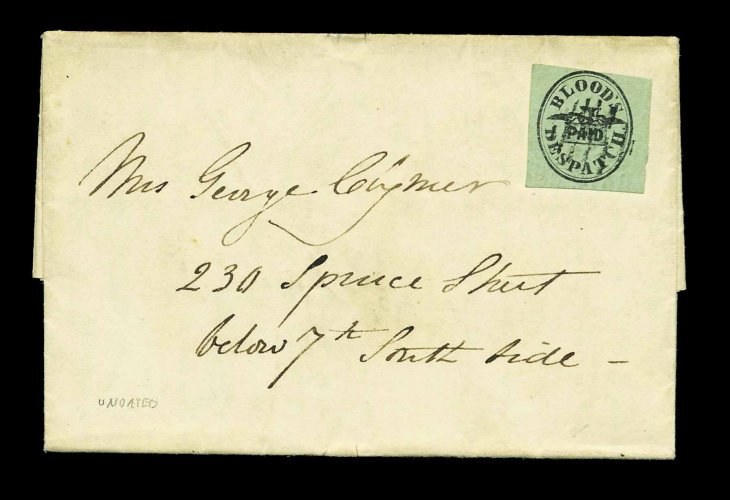 BLOOD'S
PAID
DESPATCH
Mrs George Clymer
230 Spruce Street
below 7th South side –
UNDATED